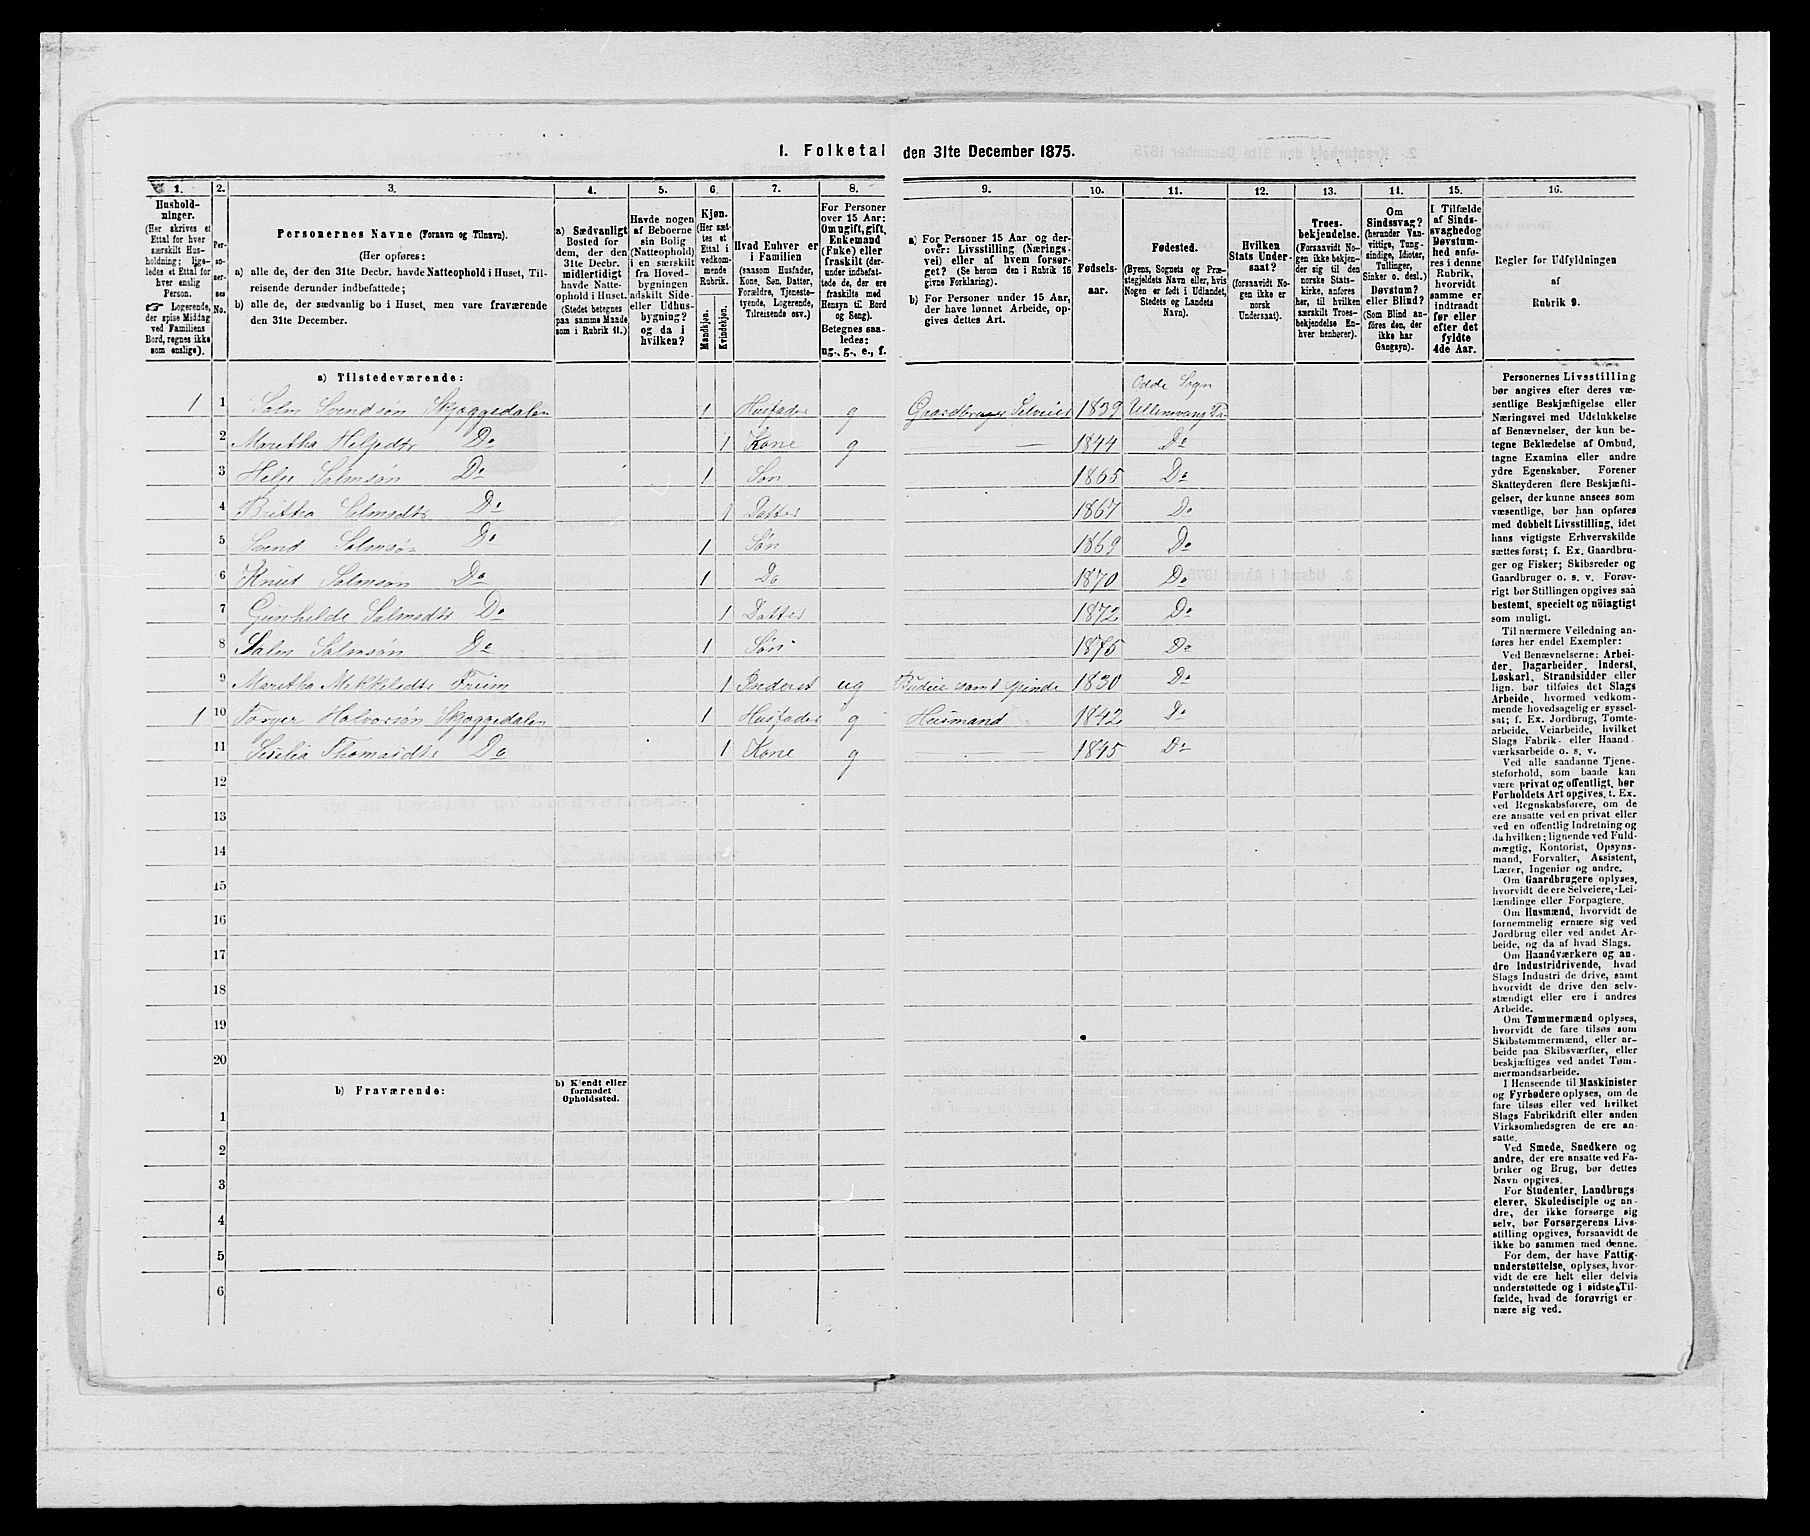 I. Folketal den 31te December 1875.
1. 2. 3. 4. 5. 6. 7. 8. 9. 10. 11. 12. 13. 14. 15. 16.
Hushold-
ninger.
(Her skrives et
Ettal for hver
særskilt Hus-
holdning; lige-
ledes et Ettal for
hver enslig
Person.
☞ Logerende,
der spise Middag
ved Familiens
Bord, regnes ikke
som enslige).
Per-
so-
ner-
nes
No.
Personernes Navne (Fornavn og Tilnavn).
(Her opføres:
a) alle de, der den 31te Decbr. havde Natteophold i Huset, Til-
reisende derunder indbefattede;
b) alle de, der sædvanlig bo i Huset, men vare fraværende
den 31te December.
a) Sædvanligt
Bosted for
dem, der den
31te Decbr.
midlertidigt
havde Natte-
ophold i Huset.
(Stedet betegnes
paa samme Maade
som i Rubrik 11.)
Havde nogen
af Beboerne
sin Bolig
(Natteophold)
i en særskilt
fra Hoved-
bygningen
adskilt Side-
eller Udhus-
bygning?
og da i
hvilken?
Kjøn.
(Her sæt-
tes et
Ettal i
vedkom-
mende
Rubrik.
Mandkjøn.
Kvindekjøn.
Hvad Enhver er
i Familien
(saasom Husfader,
Kone, Søn, Datter,
Forældre, Tjeneste-
tyende, Logerende,
Tilreisende osv.)
For Personer
over 15 Aar:
Om ugift, gift,
Enkemand
(Enke) eller
fraskilt (der-
under indbefat-
tede de, der ere
fraskilte med
Hensyn til Bord
og Seng).
Betegnes saa-
ledes:
ug., g., e., f.
a) For Personer 15 Aar og der-
over: Livsstilling (Nærings-
vei) eller af hvem forsør-
get? (Se herom den i Rubrik 16
givne Forklaring).
b) For Personer under 15 Aar,
der have lønnet Arbeide, op-
gives dettes Art.
Fødsels-
aar.
Fødested.
(Byens, Sognets og Præ-
stegjeldets Navn eller, hvis
Nogen er født i Udlandet,
Stedets og Landets
Navn).
Hvilken
Stats Under-
saat?
(forsaavidt No-
gen ikke er
norsk
Undersaat).
Troes-
bekjendelse.
(Forsaavidt No-
gen ikke bekjen-
der sig til den
norske Stats-
kirke, anføres
her, til hvilken
særskilt Troes-
bekjendelse En-
hver henhører).
Om
Sindssvag?
(herunder Van-
vittige, Tung-
sindige, Idioter,
Tullinger,
Sinker o. desl.)
Døvstum?
eller Blind?
(Som Blind an-
føres den, der
ikke har
Gangsyn).
I Tilfælde
af Sinds-
svaghed og
Døvstum-
hed anfø-
res i denne
Rubrik,
hvorvidt
samme er
indtraadt
før eller
efter det
fyldte
4de Aar.
Regler for Udfyldningen
af
Rubrik 9.
a) Tilstedeværende:
Odde Sogn
1 1 Salm Svendsøn Skjæggedalen 1 Husfader g Gaardbruger Selveier 1839 Ullensvang
2 Maretha Helgedtr Do 1 Kone g — 1844 Do
3 Helje Salmsøn Do 1 Søn 1865 Do
4 Brittha Salmsdtr Do 1 Datter 1867 Do
5 Svend Salmsøn Do 1 Søn 1869 Do
6 Knud Salmsøn Do 1 Do 1870 Do
7 Gunhilde Salmsdtr Do 1 Datter 1872 Do
8 Salm Salmsøn Do 1 Søn 1875 Do
9 Maretha Mikkelsdtr 1 Inderst ug Budeie samt spinde 1830 Do
1 10 Torger Halvorsøn Skjæggedalen 1 Husfader g Husmand 1842 Do
11 Siselia Thomasdtr Do 1 Kone g — 1845 Do
12
13
14
15
16
17
18
19
20
b) Fraværende:
b) Kjendt eller
formodet
Opholdssted.
1
2
3
4
5
6
Personernes Livsstilling
bør angives efter deres væ-
sentlige Beskjæftigelse eller
Næringsvei med Udelukkelse
af Benævnelser, der kun be-
tegne Beklædelse af Ombud,
tagne Examina eller andre
ydre Egenskaber. Forener
Skatteyderen flere Beskjæfti-
gelser, der kunne ansees som
væsentlige, bør han opføres
med dobbelt Livsstilling, idet
hans vigtigste Erhvervskilde
sættes først; f. Ex. Gaardbru-
ger og Fisker; Skibsreder og
Gaardbruger o. s. v. Forøv-
rigt bør Stillingen opgives saa
bestemt, specielt og nöiagtigt
som muligt.
Til nærmere Veiledning an-
føres her endel Exempler:
Ved Benævnelserne: Arbei-
der, Dagarbeider, Inderst,
Løskarl, Strandsidder eller
lign. bør tilføies det Slags
Arbeide, hvormed vedkom-
mende hovedsagelig er syssel-
sat; f. Ex. Jordbrug, Tomte-
arbeide, Veiarbeide, hvilket
Slags Fabrik- eller Haand-
værksarbeide o. s. v.
Ved alle saadanne Tjene-
steforhold, som baade kan
være privat og offentligt, bør
Forholdets Art opgives, t. Ex.
ved Regnskabsførere, om de
ere ansatte ved en privat eller
ved en offentlig Indretning og
da hvilken; lignende ved Fuld-
mægtig, Kontorist, Opsyns-
mand, Forvalter, Assistent,
Lærer, Ingeniør og andre.
Om Gaardbrugere oplyses,
hvorvidt de ere Selveiere, Lei-
lændinge eller Forpagtere.
Om Husmænd, hvorvidt de
fornemmelig ernære sig ved
Jordbrug eller ved andet Ar-
beide, og da af hvad Slags.
Om Haandværkere og an-
dre Industridrivende, hvad
Slags Industri de drive, samt
hvorvidt de drive den selv-
stændigt eller ere i andres
Arbeide.
Om Tømmermænd oplyses,
hvorvidt de fare tilsøs som
Skibstømmermænd, eller ar-
beide paa Skibsværfter, eller
beskjæftiges ved andet Tøm-
mermandsarbeide.
I Henseende til Maskinister
og Fyrbødere oplyses, om de
fare tilsøs eller ved hvilket
Slags Fabrikdrift eller anden
Virksomhedsgren de ere an-
satte.
Ved Smede, Snedkere og
andre, der ere ansatte ved Fa-
briker og Brug, bør dettes
Navn opgives.
For Studenter, Landbrugs-
elever, Skoledisciple og an-
dre, der ikke forsørge sig
selv, bør Forsørgerens Livs-
stilling opgives, forsaavidt de
ikke bo sammen med denne.
For dem, der have Fattig-
understøttelse, oplyses, hvor-
vidt de ere helt eller delvis
understøttede og i sidste Til-
fælde, hvad de forøvrigt er-
nære sig ved.